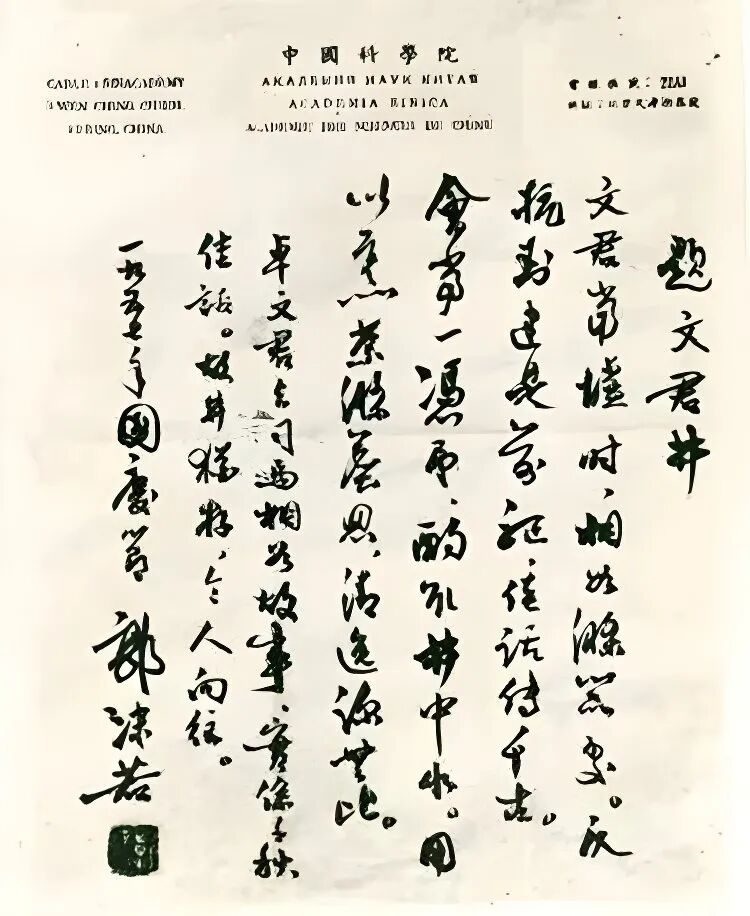 中國科學院
АКАДЕМИЯ НАУК КИТАЯ
ACADEMIA SINICA
PEKING, CHINA
题文君井
文君當壚时、相如滌器处。反
抗封建是前驱、佳话传千古。
會當一憑弔、酌取井中水。用
以烹茶滌塵思、清逸谅無比。
卓文君与司馬相如故事、實係千秋
佳話。故井猶存、令人向往。
一九五七年國慶節
郭沫若